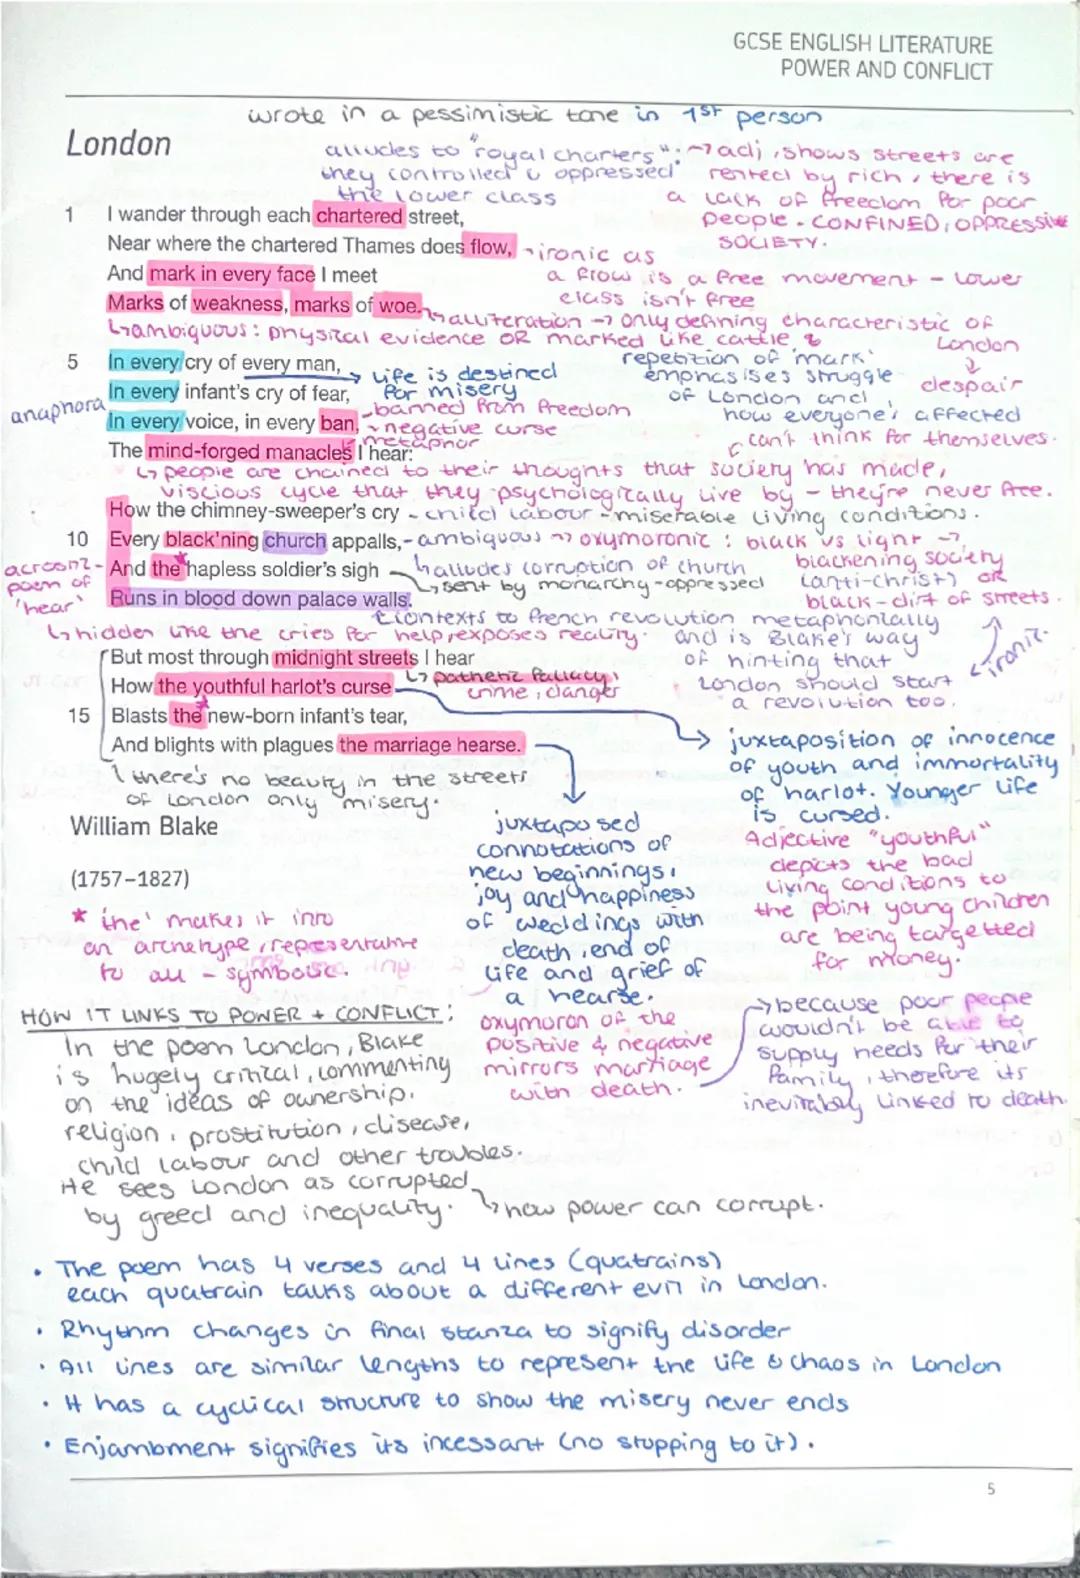 GCSE ENGLISH LITERATURE
POWER AND CONFLICT
wrote in a pessimistic tone in 1st person
London
alludes to "royal charters":
they controlled & oppressed
the lower class
→adj, shows streets are
rented by rich, there is
a lack of freedom for poor
people. CONFINED, OPPRESSIVE
SOCIETY.
1 I wander through each chartered street,
Near where the chartered Thames does flow,
→ironic as
a flow is a free movement - lower
class isn't free
And mark in every face I meet
Marks of weakness, marks of woe.
↳alliteration → only defining characteristic of
London
↓
despair
↳ambiguous: physical evidence OR marked like cattle &
repetition of 'mark'
emphasises struggle
of London and
how everyone's affected
5 In every cry of every man,
→ life is destined
for misery
In every infant's cry of fear,
anaphora
In every voice, in every ban,
-banned from freedom
→ negative curse
metaphor
The mind-forged manacles I hear:
can't think for themselves.
↳ people are chained to their thoughts that society has made,
viscious cycle that they psychologically live by - they're never free.
How the chimney-sweeper's cry - child labour - miserable living conditions.
10 Every black'ning church appalls, - ambiguous → oxymoronic : black vs light →
blackening society
(anti-christ) OR
black-dirt of streets.
And the* hapless soldier's sigh
↳alludes corruption of church
↳sent by monarchy - oppressed
acrostic-
poem of
'hear'
Runs in blood down palace walls.
↳contexts to french revolution metaphorically
and is Blake's way
of hinting that
London should start
a revolution too.
ironic.
↳ hidden like the cries for help, exposes reality.
But most through midnight streets I hear
↳ pathetic fallacy,
crime, danger
How the youthful harlot's curse
15 Blasts the* new-born infant's tear,
And blights with plagues the marriage hearse.
→ juxtaposition of innocence
of youth and immortality
of harlot. Younger life
is cursed.
Adjective "youthful"
depicts the bad
living conditions to
the point young children
are being targetted
for money.
there's no beauty in the streets
of London only misery.
William Blake
(1757–1827)
juxtaposed
connotations of
new beginnings,
joy and happiness
of weddings with
death, end of
life and grief of
a hearse.
oxymoron of the
positive & negative
mirrors marriage
with death.
→because poor people
wouldn't be able to
supply needs for their
family, therefore its
inevitably linked to death.
* 'the' makes it into
an archetype, representative
to all - symbolic.
HOW IT LINKS TO POWER + CONFLICT:
In the poem London, Blake
is hugely critical, commenting
on the ideas of ownership,
religion, prostitution, disease,
child labour and other troubles.
He sees London as corrupted
by greed and inequality. ↳how power can corrupt.
• The poem has 4 verses and 4 lines (quatrains)
each quatrain talks about a different evil in London.
• Rhythm changes in final stanza to signify disorder
• All lines are similar lengths to represent the life & chaos in London
• It has a cyclical structure to show the misery never ends
• Enjambment signifies its incessant (no stopping to it).
5